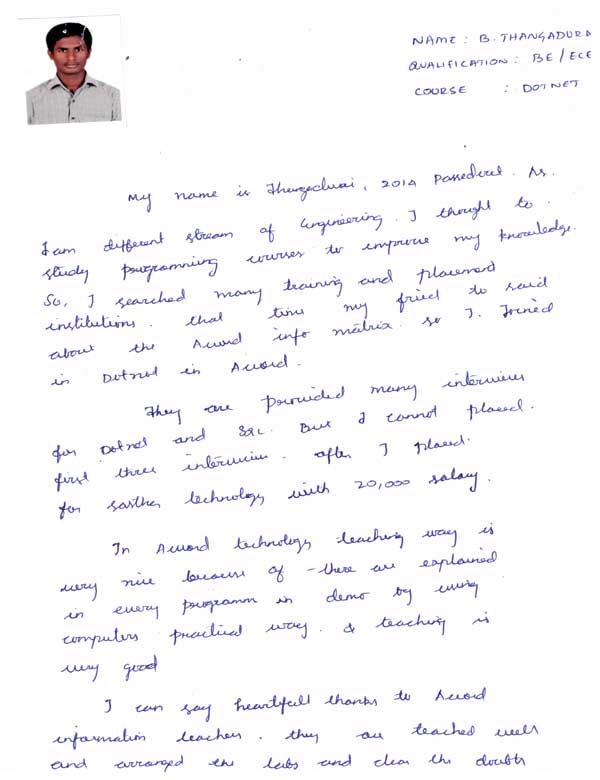 NAME : B. THANGADURA
QUALIFICATION : BE/ECE
COURSE : DOTNET
My name is Thangadurai, 2014 Passedout. As
I am different stream of Engineering. I thought to
study programming courses to improve my knowledge.
So, I searched many training and placement
institutions. that time my fried to said
about the Accord info matrix. so I Joined
in Dotnet in Accord.
They are provided many interviews
for Dotnet and SQL. But I cannot placed.
first three interview. after I placed.
for sastha technology with 20,000 salary.
In Accord technology teaching way is
very nice because of there are explained
in every programm in demo by using
computers practical way. & teaching is
very good
I can say heartfull thanks to Accord
information teachers. they are teached well
and arranged the labs and clear the doubts